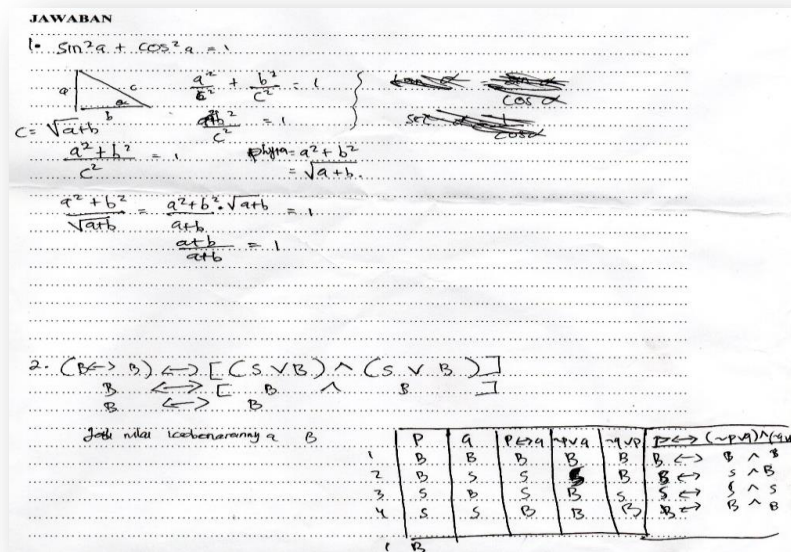 JAWABAN
1. Sin²a + cos²a = 1
a c b a
a²/c² + b²/c² = 1
C = √a+b
a+b²/c² = 1
a²+b²/c² = 1
phyta = a²+b²
= √a+b.
tan α = sin α/cos α
sec α = 1/cos α
a²+b²/√a+b = a²+b².√a+b/a+b = 1
a+b/a+b = 1
2. (B↔B) ↔ [(S∨B) ∧ (S ∨ B)]
B ↔ [ B ∧ B ]
B ↔ B
Jadi nilai kebenarannya B
P q P↔q ~p∨q ~q∨p P↔(~p∨q)∧(~q∨
1 B B B B B B ↔ B ∧ B
2 B S S B B ↔ S ∧ B
3 S B S B S S ↔ S ∧ S
4 S S B B B B ↔ B ∧ B
1 B